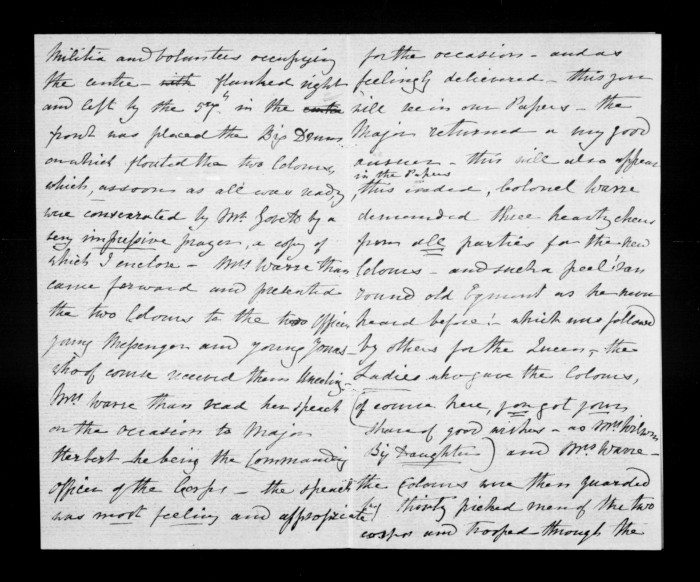 Militia and Volunteers occupying
the centre – with flanked right
and left by the 57th. in the centre
front was placed the Big Drum
on which floated the two Colours,
which, as soon as all was ready
were consecrated by Mr. Govett by a
very impressive prayer, a copy of
which I enclose – Mrs Warre then
came forward and presented
the two Colours to the two Officers
young Messenger and young Jonas –
who of course received them kneeling –
Mrs Warre then read her speech
on the occasion to Major
Herbert – he being the Commanding
Officer of the Corps – the speech
was most feeling and appropriate
for the occasion – and as
feelingly delivered – this you
will see in our Papers – the
Major returned a very good
answer – this will also appear
in the Papers
, this ended, Colonel Warre
demanded three hearty cheers
from all parties for the new
Colours – and such a peel ran
round old Egmont as he never
heard before! – which was followed
by others for the Queen, – the
Ladies who gave the Colours,
(of course here, you got your
share of good wishes – as Mrs Wilson's
Big Daughter) and Mrs Warre –
the Colours were then guarded
by thirty picked men of the two
corps and trooped through the